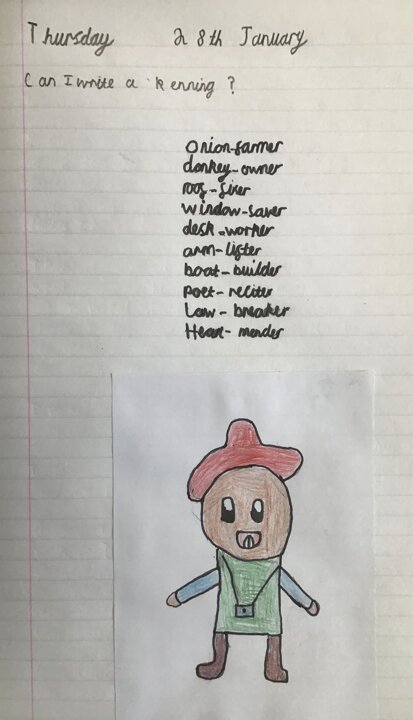 Thursday 28th January
Can I write a kenning?
Onion-farmer
donkey-owner
roof-fixer
window-saver
desk-worker
arm-lifter
boat-builder
Poet-reciter
Law-breaker
Hear-mender